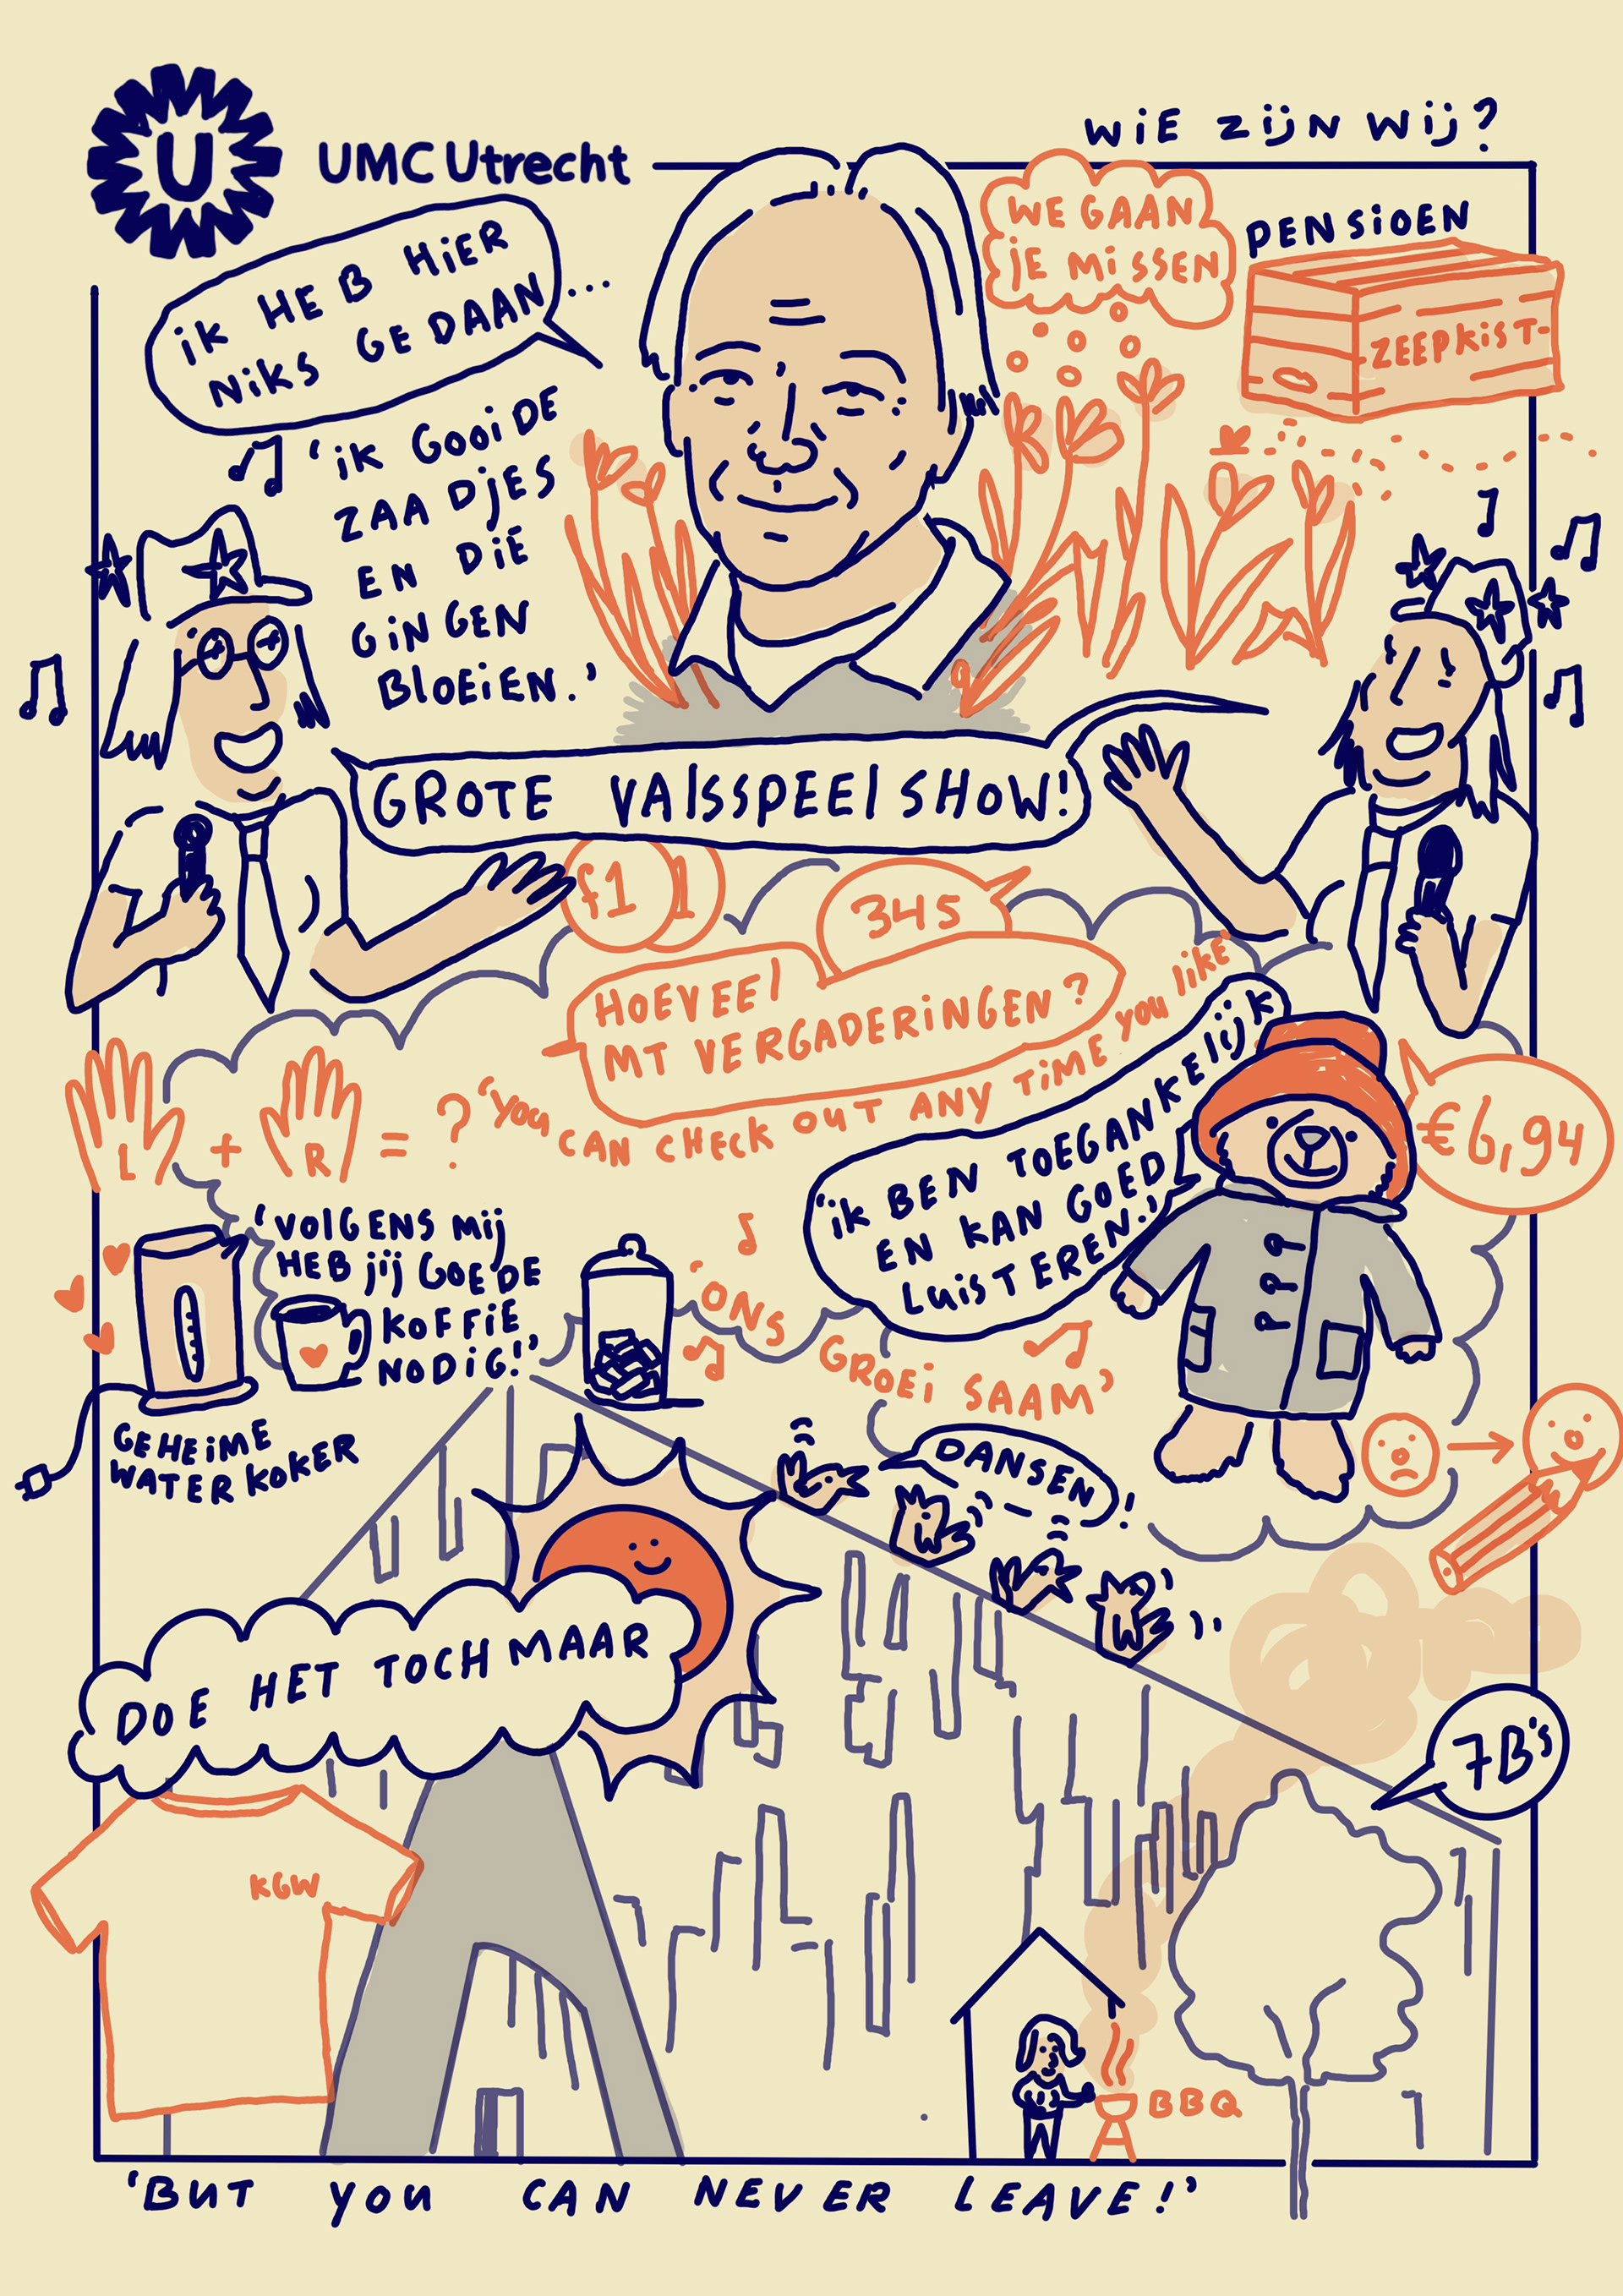 U
UMC Utrecht
WiE ZijN Wij?
iK HEB HiER
NiKS GEDAAN...
WE GAAN
jE MiSSEN
PENSiOEN
ZEEPKiST-
'iK GOOiDE
ZAADjES
EN DiE
GiNGEN
BLOEiEN.'
GROTE VAlSSPEElSHOW!
f1 1
345
HOEVEEl
MT VERGADERiNGEN?
'YOU CAN CHECK OUT ANY TiME YOU liKE'
L + R = ?
'iK BEN TOEGANKElijK
EN KAN GOED
LUiSTEREN.'
€6,94
'VOlGENS Mij
HEB jij GOEDE
KOFFiE
NODiG!'
GEHEiME
WATERKOKER
'ONS
GROEi SAAM'
DANSEN!
DOE HET TOCH MAAR
7B's
KGW
BBQ
'BUT YOU CAN NEVER LEAVE!'